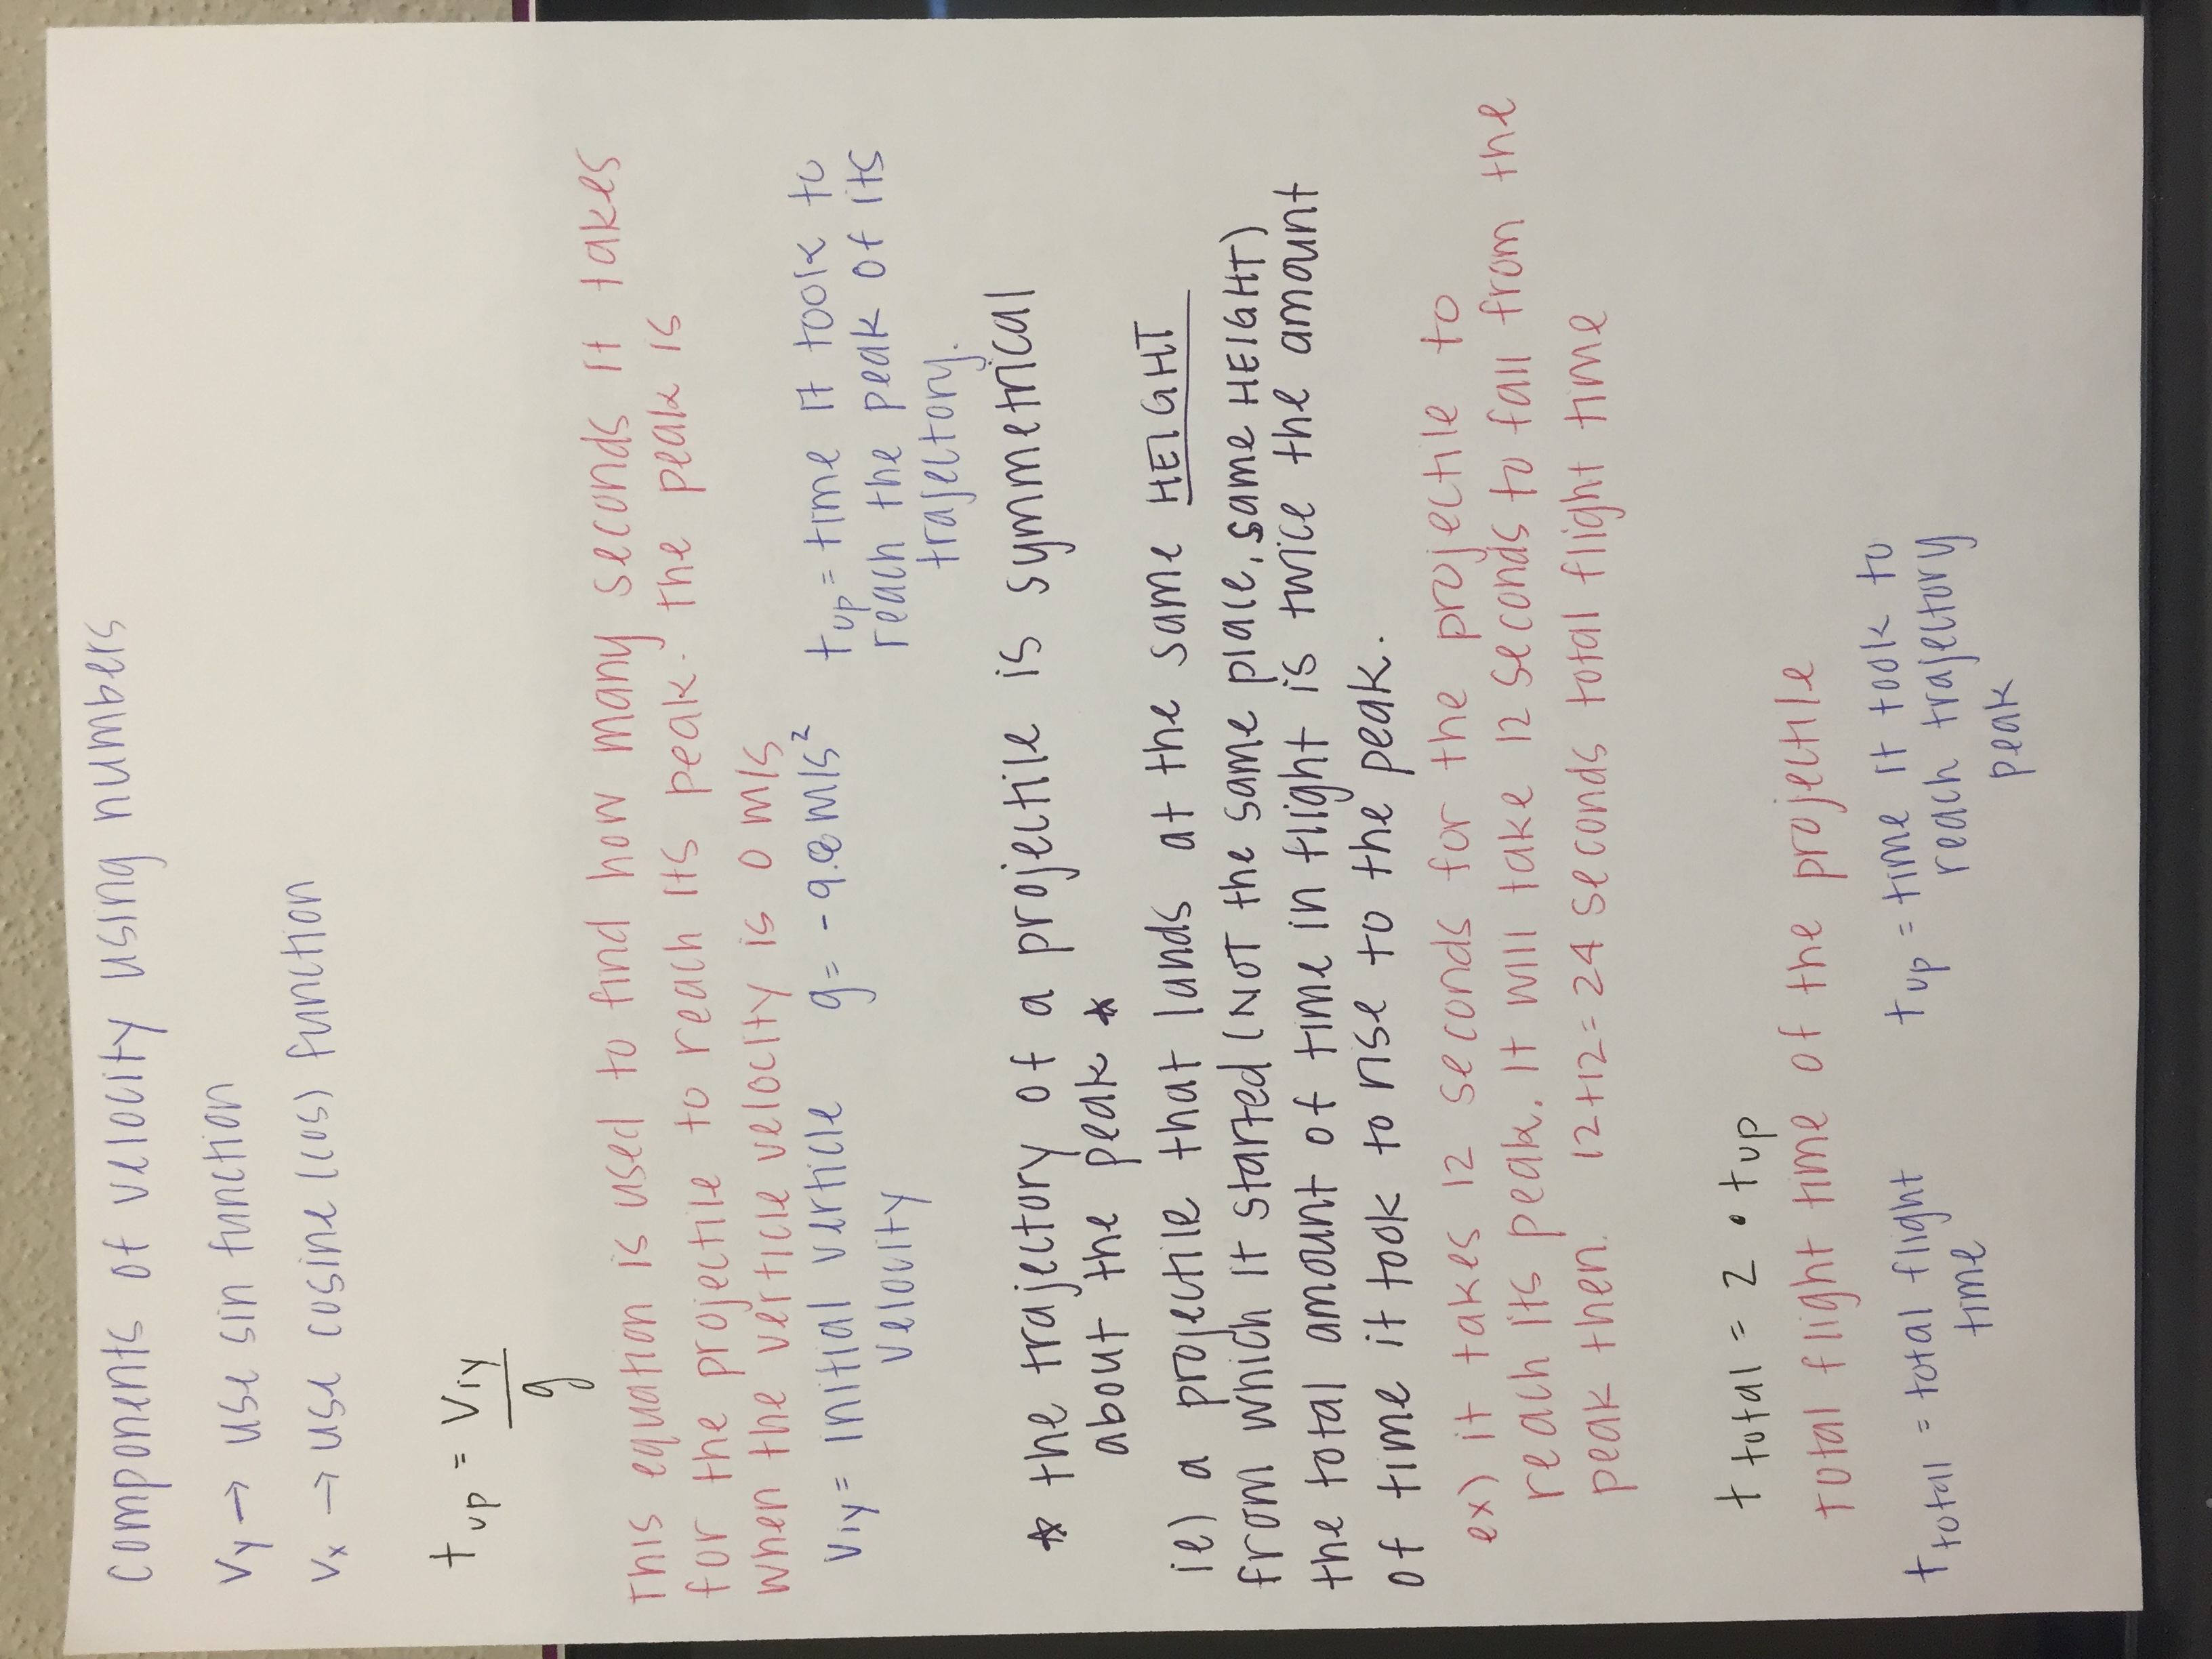 components of velocity using numbers
vy → use sin function
vx → use cosine (cos) function
t up = viy / g
This equation is used to find how many seconds it takes
for the projectile to reach its peak. the peak is
when the verticle velocity is 0 m/s
viy = initial verticle velocity
g = -9.8 m/s²
t up = time it took to reach the peak of its trajectory.
* the trajectory of a projectile is symmetrical
about the peak *
ie) a projectile that lands at the same HEIGHT
from which it started (NOT the same place, same HEIGHT)
the total amount of time in flight is twice the amount
of time it took to rise to the peak.
ex) it takes 12 seconds for the projectile to
reach its peak. It will take 12 seconds to fall from the
peak then. 12+12=24 seconds total flight time
t total = 2 • t up
total flight time of the projectile
t total = total flight time
t up = time it took to reach trajectory peak